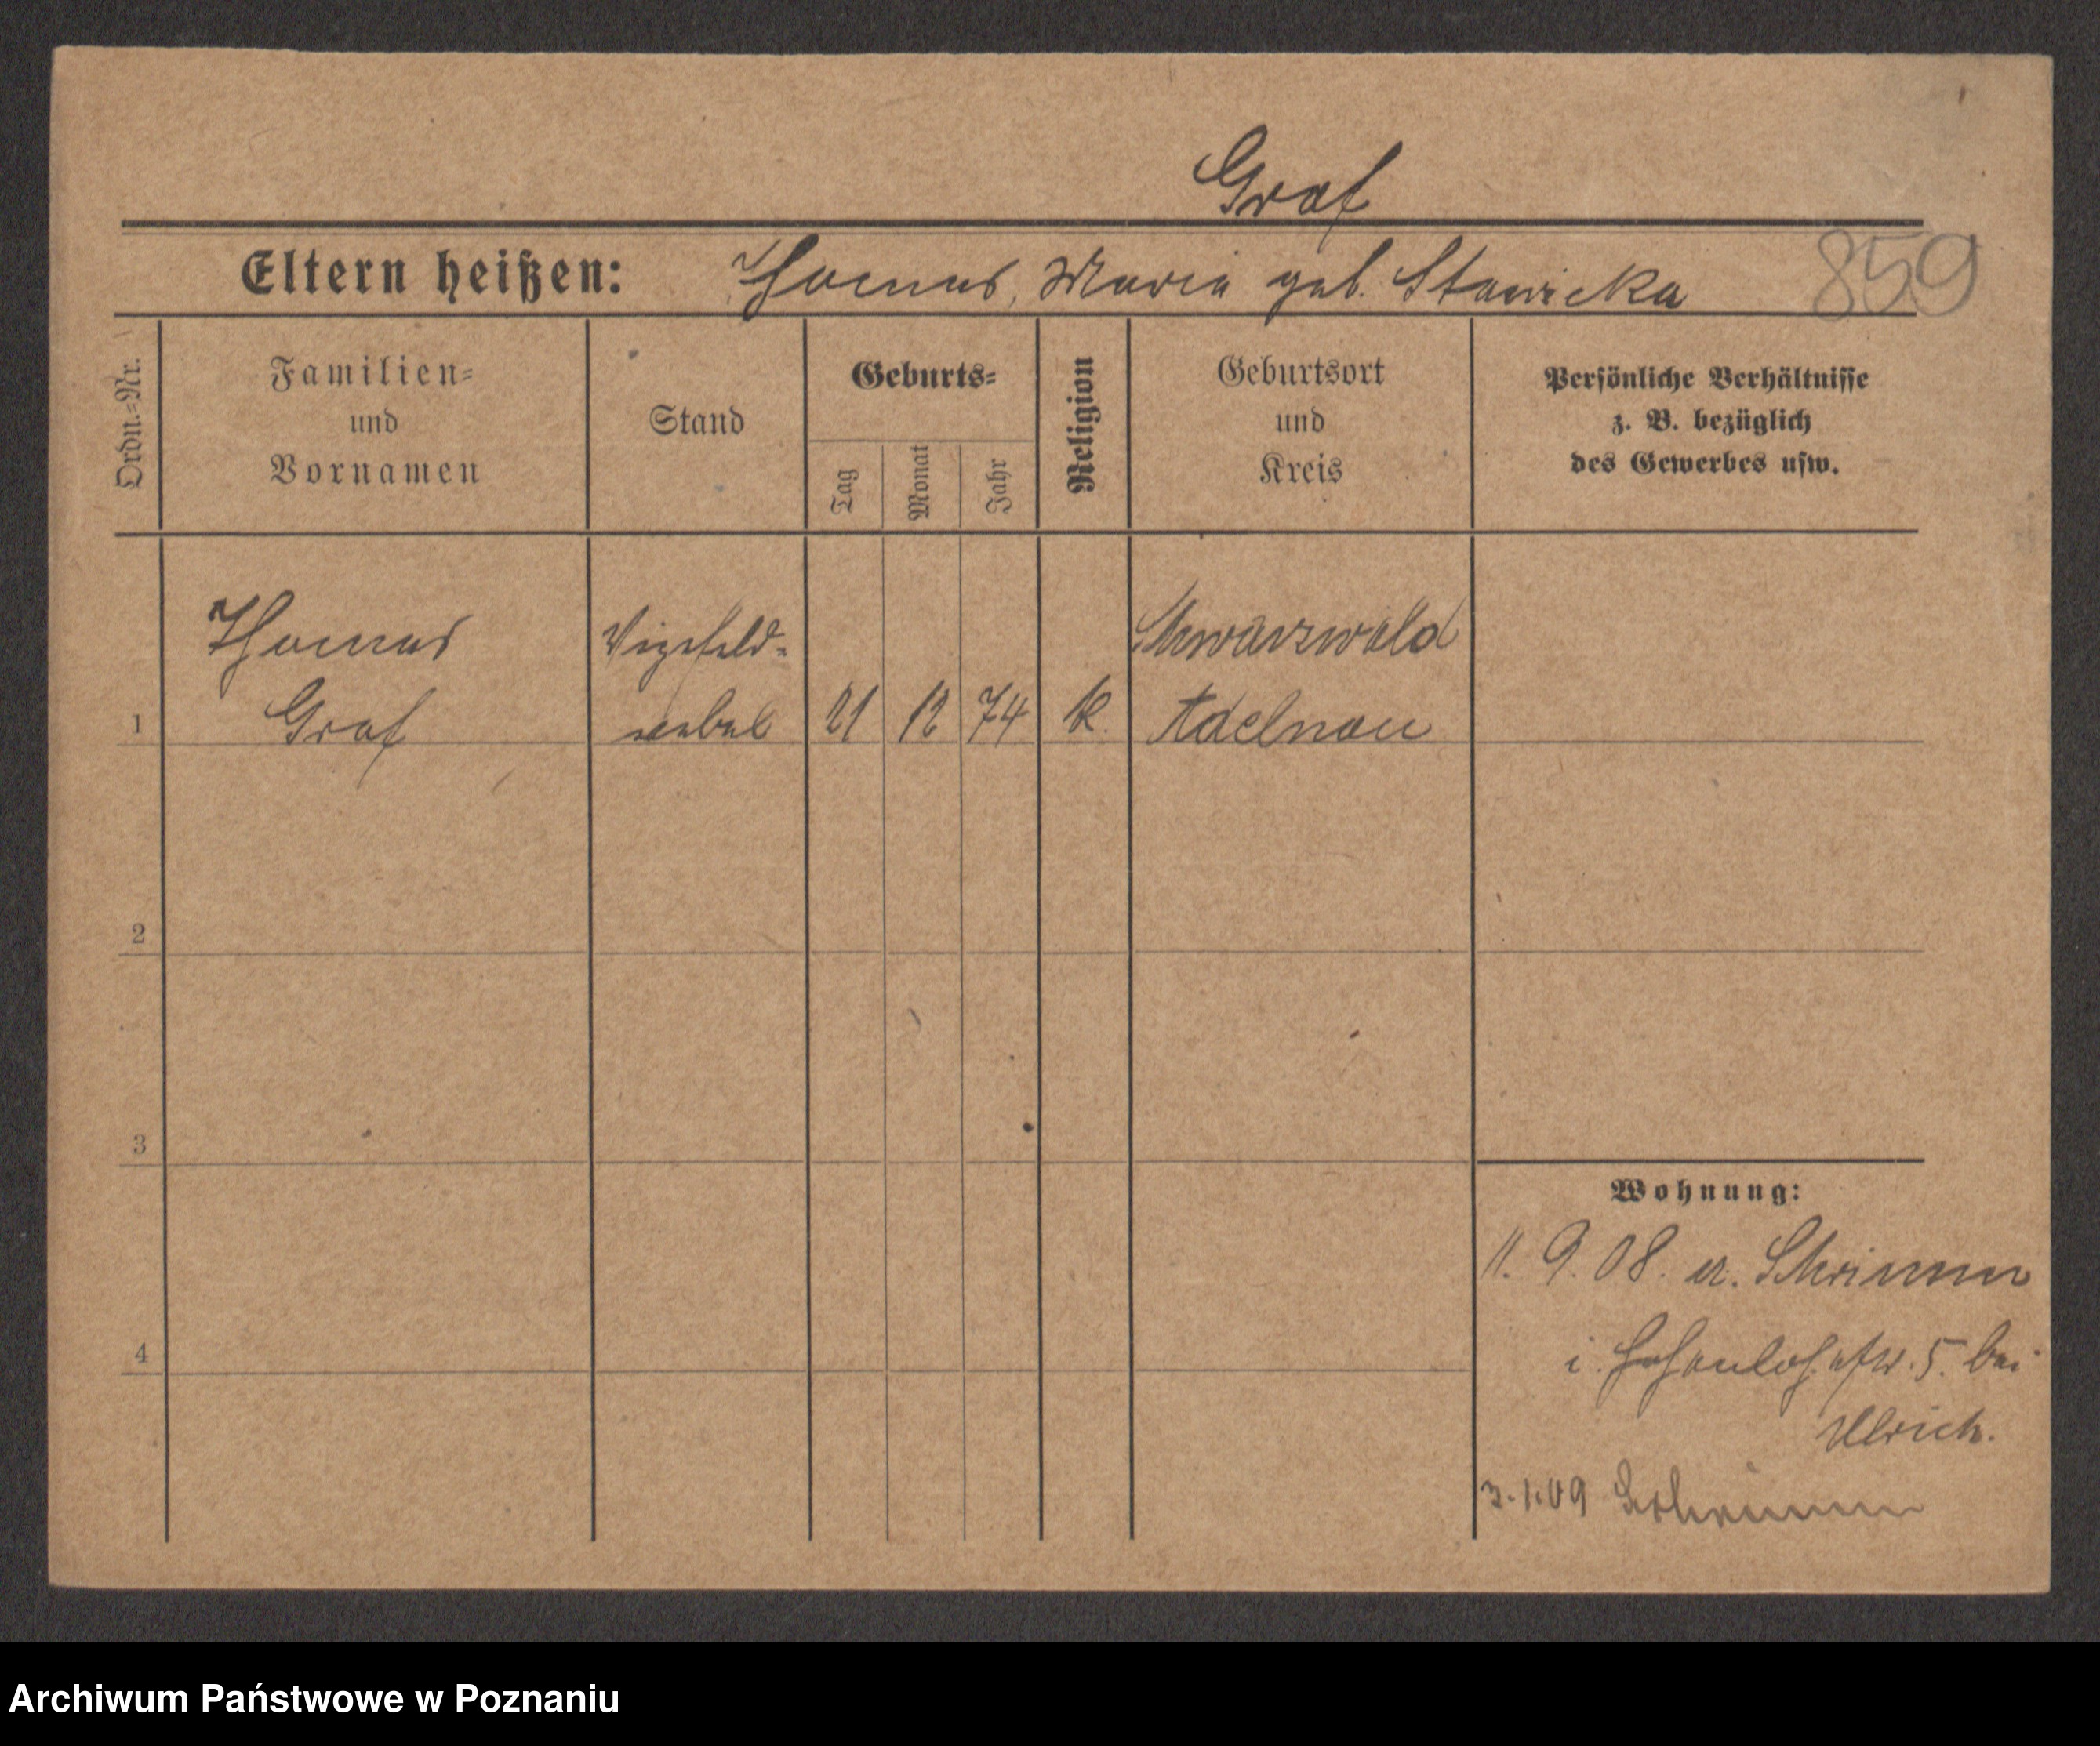 Graf
Eltern heißen: Thomas, Maria geb. Stawicka 859
Ordn.-Nr.
Familien-
und
Vornamen
Stand
Geburts-
Tag
Monat
Jahr
Religion
Geburtsort
und
Kreis
Persönliche Verhältnisse
z. B. bezüglich
des Gewerbes usw.
Thomas Vizefeld- Schwarzwald
1 Graf webel 21 12 74 K. Adelnau
2
3
Wohnung:
11. 9. 08. a. Schrimm
4
i. Hohenloh. 5. bei
Ulrich.
3.1.09 Schrimm
Archiwum Państwowe w Poznaniu